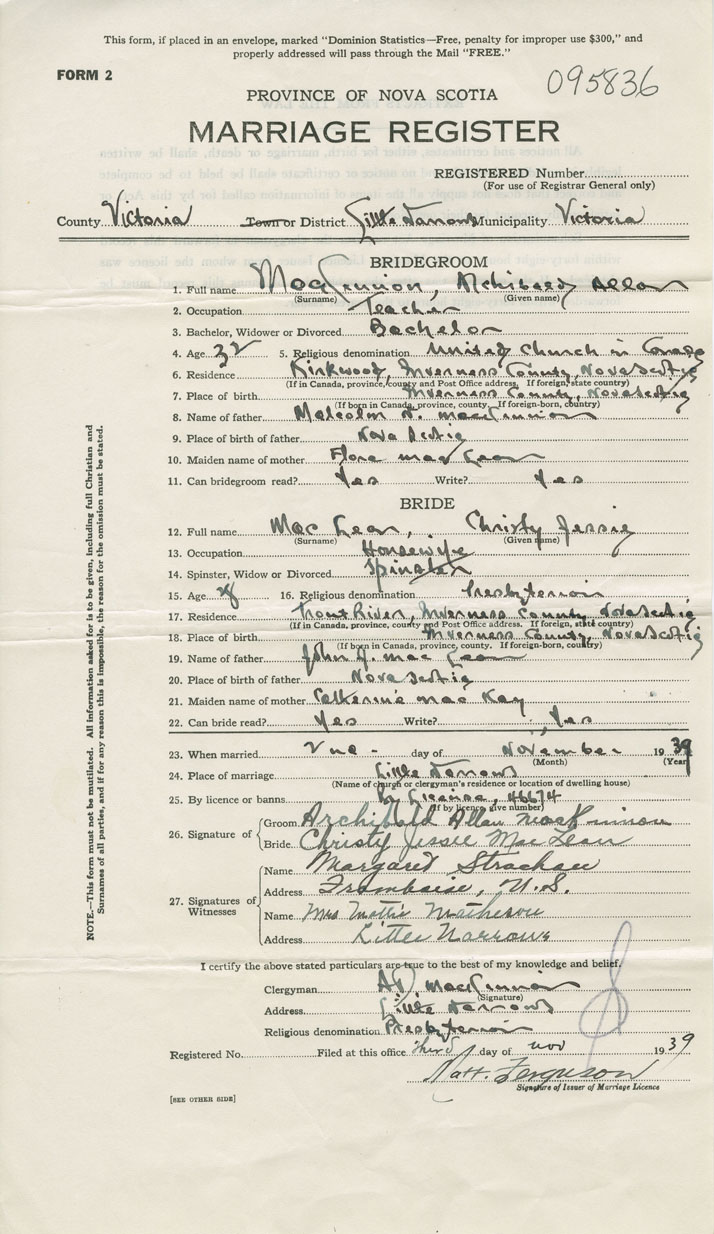 This form, if placed in an envelope, marked "Dominion Statistics—Free, penalty for improper use $300," and
properly addressed will pass through the Mail "FREE."
FORM 2
095836
PROVINCE OF NOVA SCOTIA
MARRIAGE REGISTER
REGISTERED Number
(For use of Registrar General only)
County Victoria Town or District Little Narrows Municipality Victoria
BRIDEGROOM
1. Full name MacKinnon, Archibald Allan
(Surname) (Given name)
2. Occupation Teacher
3. Bachelor, Widower or Divorced Bachelor
4. Age 32 5. Religious denomination United Church in Canada
6. Residence Kirkwood, Inverness County, Nova Scotia
(If in Canada, province, county and Post Office address. If foreign, state country)
7. Place of birth Inverness County, Nova Scotia
(If born in Canada, province, county. If foreign-born, country)
8. Name of father Malcolm N. MacKinnon
9. Place of birth of father Nova Scotia
10. Maiden name of mother Flora MacLean
11. Can bridegroom read? Yes Write? Yes
BRIDE
12. Full name MacLean, Christy Jessie
(Surname) (Given name)
13. Occupation Housewife
14. Spinster, Widow or Divorced Spinster
15. Age 16. Religious denomination Presbyterian
17. Residence Trout River, Inverness County, Nova Scotia
(If in Canada, province, county and Post Office address. If foreign, state country)
18. Place of birth Inverness County, Nova Scotia
(If born in Canada, province, county. If foreign-born, country)
19. Name of father John A. MacLean
20. Place of birth of father Nova Scotia
21. Maiden name of mother Catherine MacKay
22. Can bride read? Yes Write? Yes
23. When married day of November 1939
(Month) (Year)
24. Place of marriage Little Narrows
(Name of church or clergyman's residence or location of dwelling house)
25. By licence or banns By Licence, 46674
(If by licence, give number)
26. Signature of Groom Archibald Allan MacKinnon
Bride Christy Jessie MacLean
27. Signatures of Witnesses Name Margaret Strachan
Address Framboise, N.S.
Name Mrs Mattie Matheson
Address Little Narrows
I certify the above stated particulars are true to the best of my knowledge and belief.
Clergyman A.D. MacKinnon
(Signature)
Address Little Narrows
Religious denomination Presbyterian
Registered No. Filed at this office third day of Nov 1939
Ferguson
Signature of Issuer of Marriage Licence
[SEE OTHER SIDE]
NOTE.—This form must not be mutilated. All information asked for is to be given, including full Christian and
Surnames of all parties, and if for any reason this is impossible, the reason for the omission must be stated.